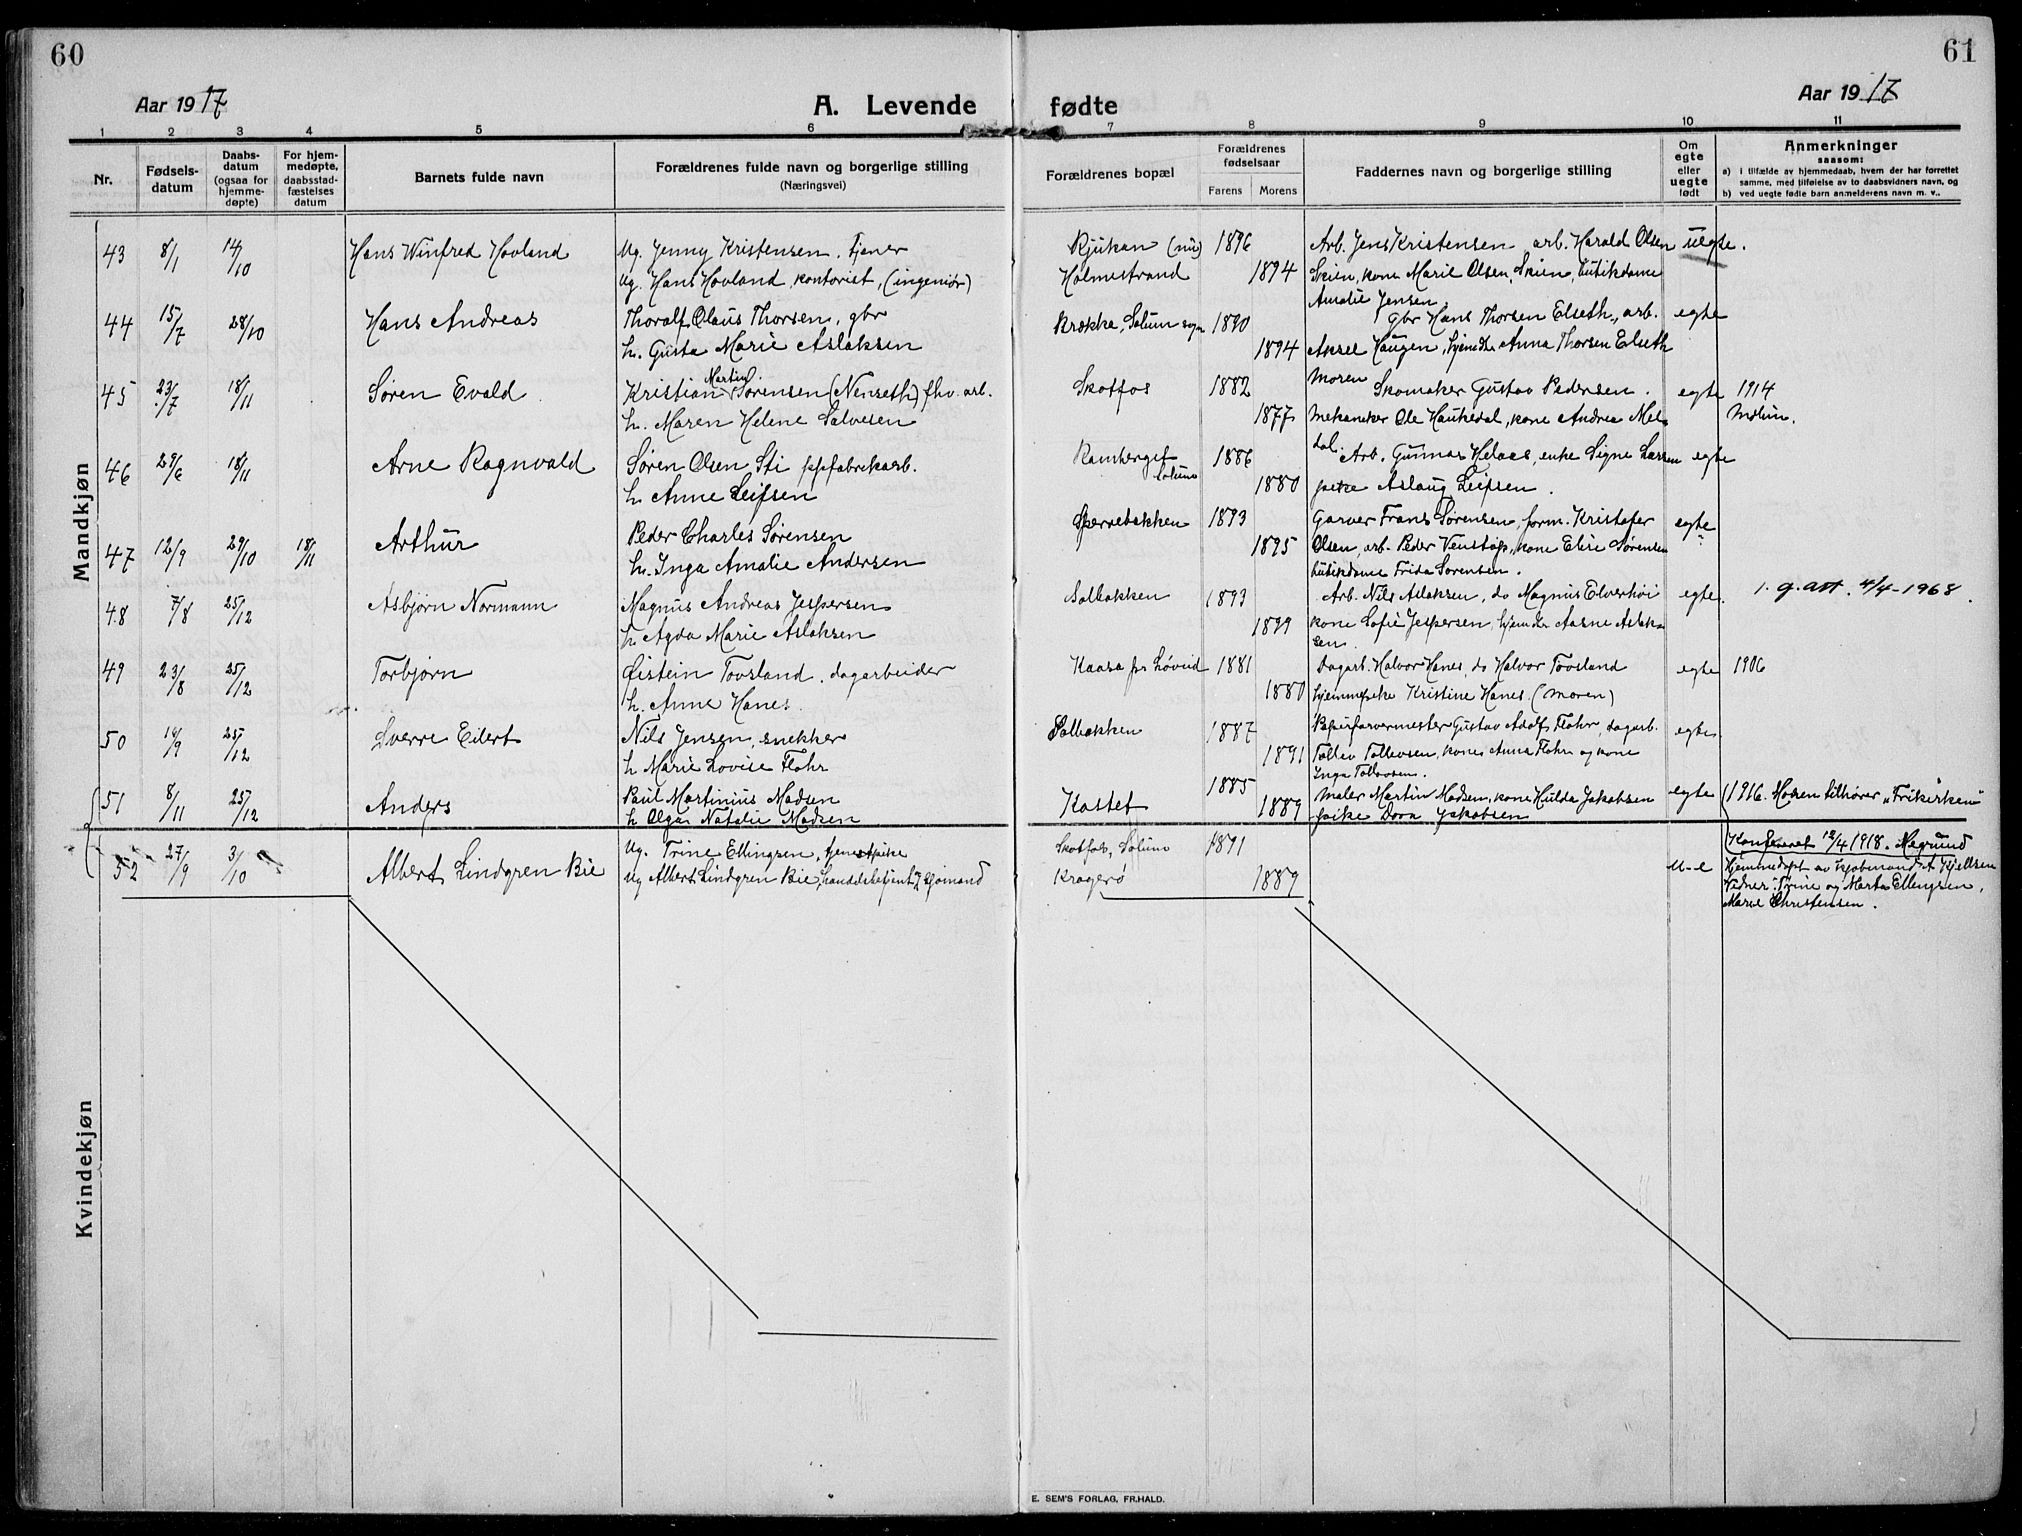 60
61
Aar 1917
A. Levende fødte
Aar 1917
1 2 3 4 5 6 7 8 9 10 11
Nr.
Fødsels-
datum
Daabs-
datum
(ogsaa for
hjemme-
døpte)
For hjem-
medøpte,
daabsstad-
fæstelses
datum
Barnets fulde navn
Forældrenes fulde navn og borgerlige stilling
(Næringsvei)
Forældrenes bopæl
Forældrenes
fødselsaar
Farens Morens
Faddernes navn og borgerlige stilling
Om
egte
eller
uegte
født
Anmerkninger
saasom:
a) i tilfælde av hjemmedaab, hvem der har forrettet
samme, med tilføielse av to daabsvidners navn, og
b) ved uegte fødte barn anmelderens navn m. v..
Mandkjøn
43 8/1 14/10 Hans Winfred Hovland Ug. Jenny Kristensen, tjener Rjukan (nu) 1896 Arb. Jens Kristensen, arb. Harald Olsen uegte.
Ug. Hans Hovland, kontorist, (ingeniør) Holmestrand 1894 Skien, kone Marie Olsen, Skien, butikdame
Amalie Jensen.
44 15/7 28/10 Hans Andreas Thoralf Olaus Thorsen, gbr Krokka, Solum sogn 1890 Gbr Hans Thorsen Elseth, arb. egte
h. Gusta Marie Aslaksen 1894 Aksel Haugen, hjemdtr Anna Thorsen Elseth
moren
45 23/7 18/11 Søren Evald Kristian Martin Sørensen (Nenseth) fhv. arb. Skotfos 1882 Skomaker Gustav Pedersen. egte 1914
h. Maren Helene Salvesen 1877 Mekaniker Ole Haukedal, kone Andrea Mel- Molum.
dal.
46 29/6 18/11 Arne Ragnvald Søren Olsen Sti ppfabrikarb. Ramberget 1886 Arb. Gunnar Helaas, enke Signe Larsen egte
Solum
h. Anne Leifsen 1880 pike Aslaug Leifsen.
47 12/9 29/10 18/11 Arthur Peder Charles Sørensen Sperrebakken 1893 Garver Frans Sørensen, form. Kristofer egte
h. Inga Amalie Andersen 1895 Olsen, arb. Peder Venstøp, kone Elise Sørensen
butikdame Frida Sørensen.
48 7/8 25/12 Asbjørn Normann Magnus Andreas Jespersen Solbakken 1893 Arb. Nils Aslaksen, do Magnus Elverhøi egte. 1. g. att. 4/4-1968.
h. Agda Marie Aslaksen 1899 kone Sofie Jespersen, hjemdtr Aasne Aslak-
sen
49 23/8 25/12 Torbjørn Øistein Tovsland, dagarbeider Kaasa pr Løveid 1881 Dagarb. Halvor Hanes, do Halvor Tovsland egte 1906
h. Anne Hanes. 1880 hjemmepike Kristine Hanes. (moren)
50 14/9 25/12 Sverre Eilert Nils Jensen, snekker Solbakken 1887 Papirfarvermester Gustav Adolf Flohr, dagarb. egte
h Marie Lovise Flohr 1891 Tollev Tollevsen, kone Anna Flohr og kone
Inga Tollevsen.
51 8/11 25/12 Anders Paul Martinius Madsen Kastet 1885 Maler Martin Madsen, kone Hulda Jakobsen egte (1916. Moren tilhører "Frikirken"
h Olga Natalie Madsen 1889 pike Dora Jakobsen
Konfereret 12/4 1918. Negrund
52 27/9 3/10 Albert Lindgren Bie Ug. Trine Ellingsen, tjenestpike Skotfos, Solum 1891 U-e Hjemmedøpt av kjøbmand A. Kjellsen
Ug Albert Lindgren Bie, handelsbetjent og sjømand Kragerø 1889 Vidner: Trine og Marta Ellingsen,
Marie Christensen.
Kvindekjøn
E. SEM'S FORLAG, FR.HALD.